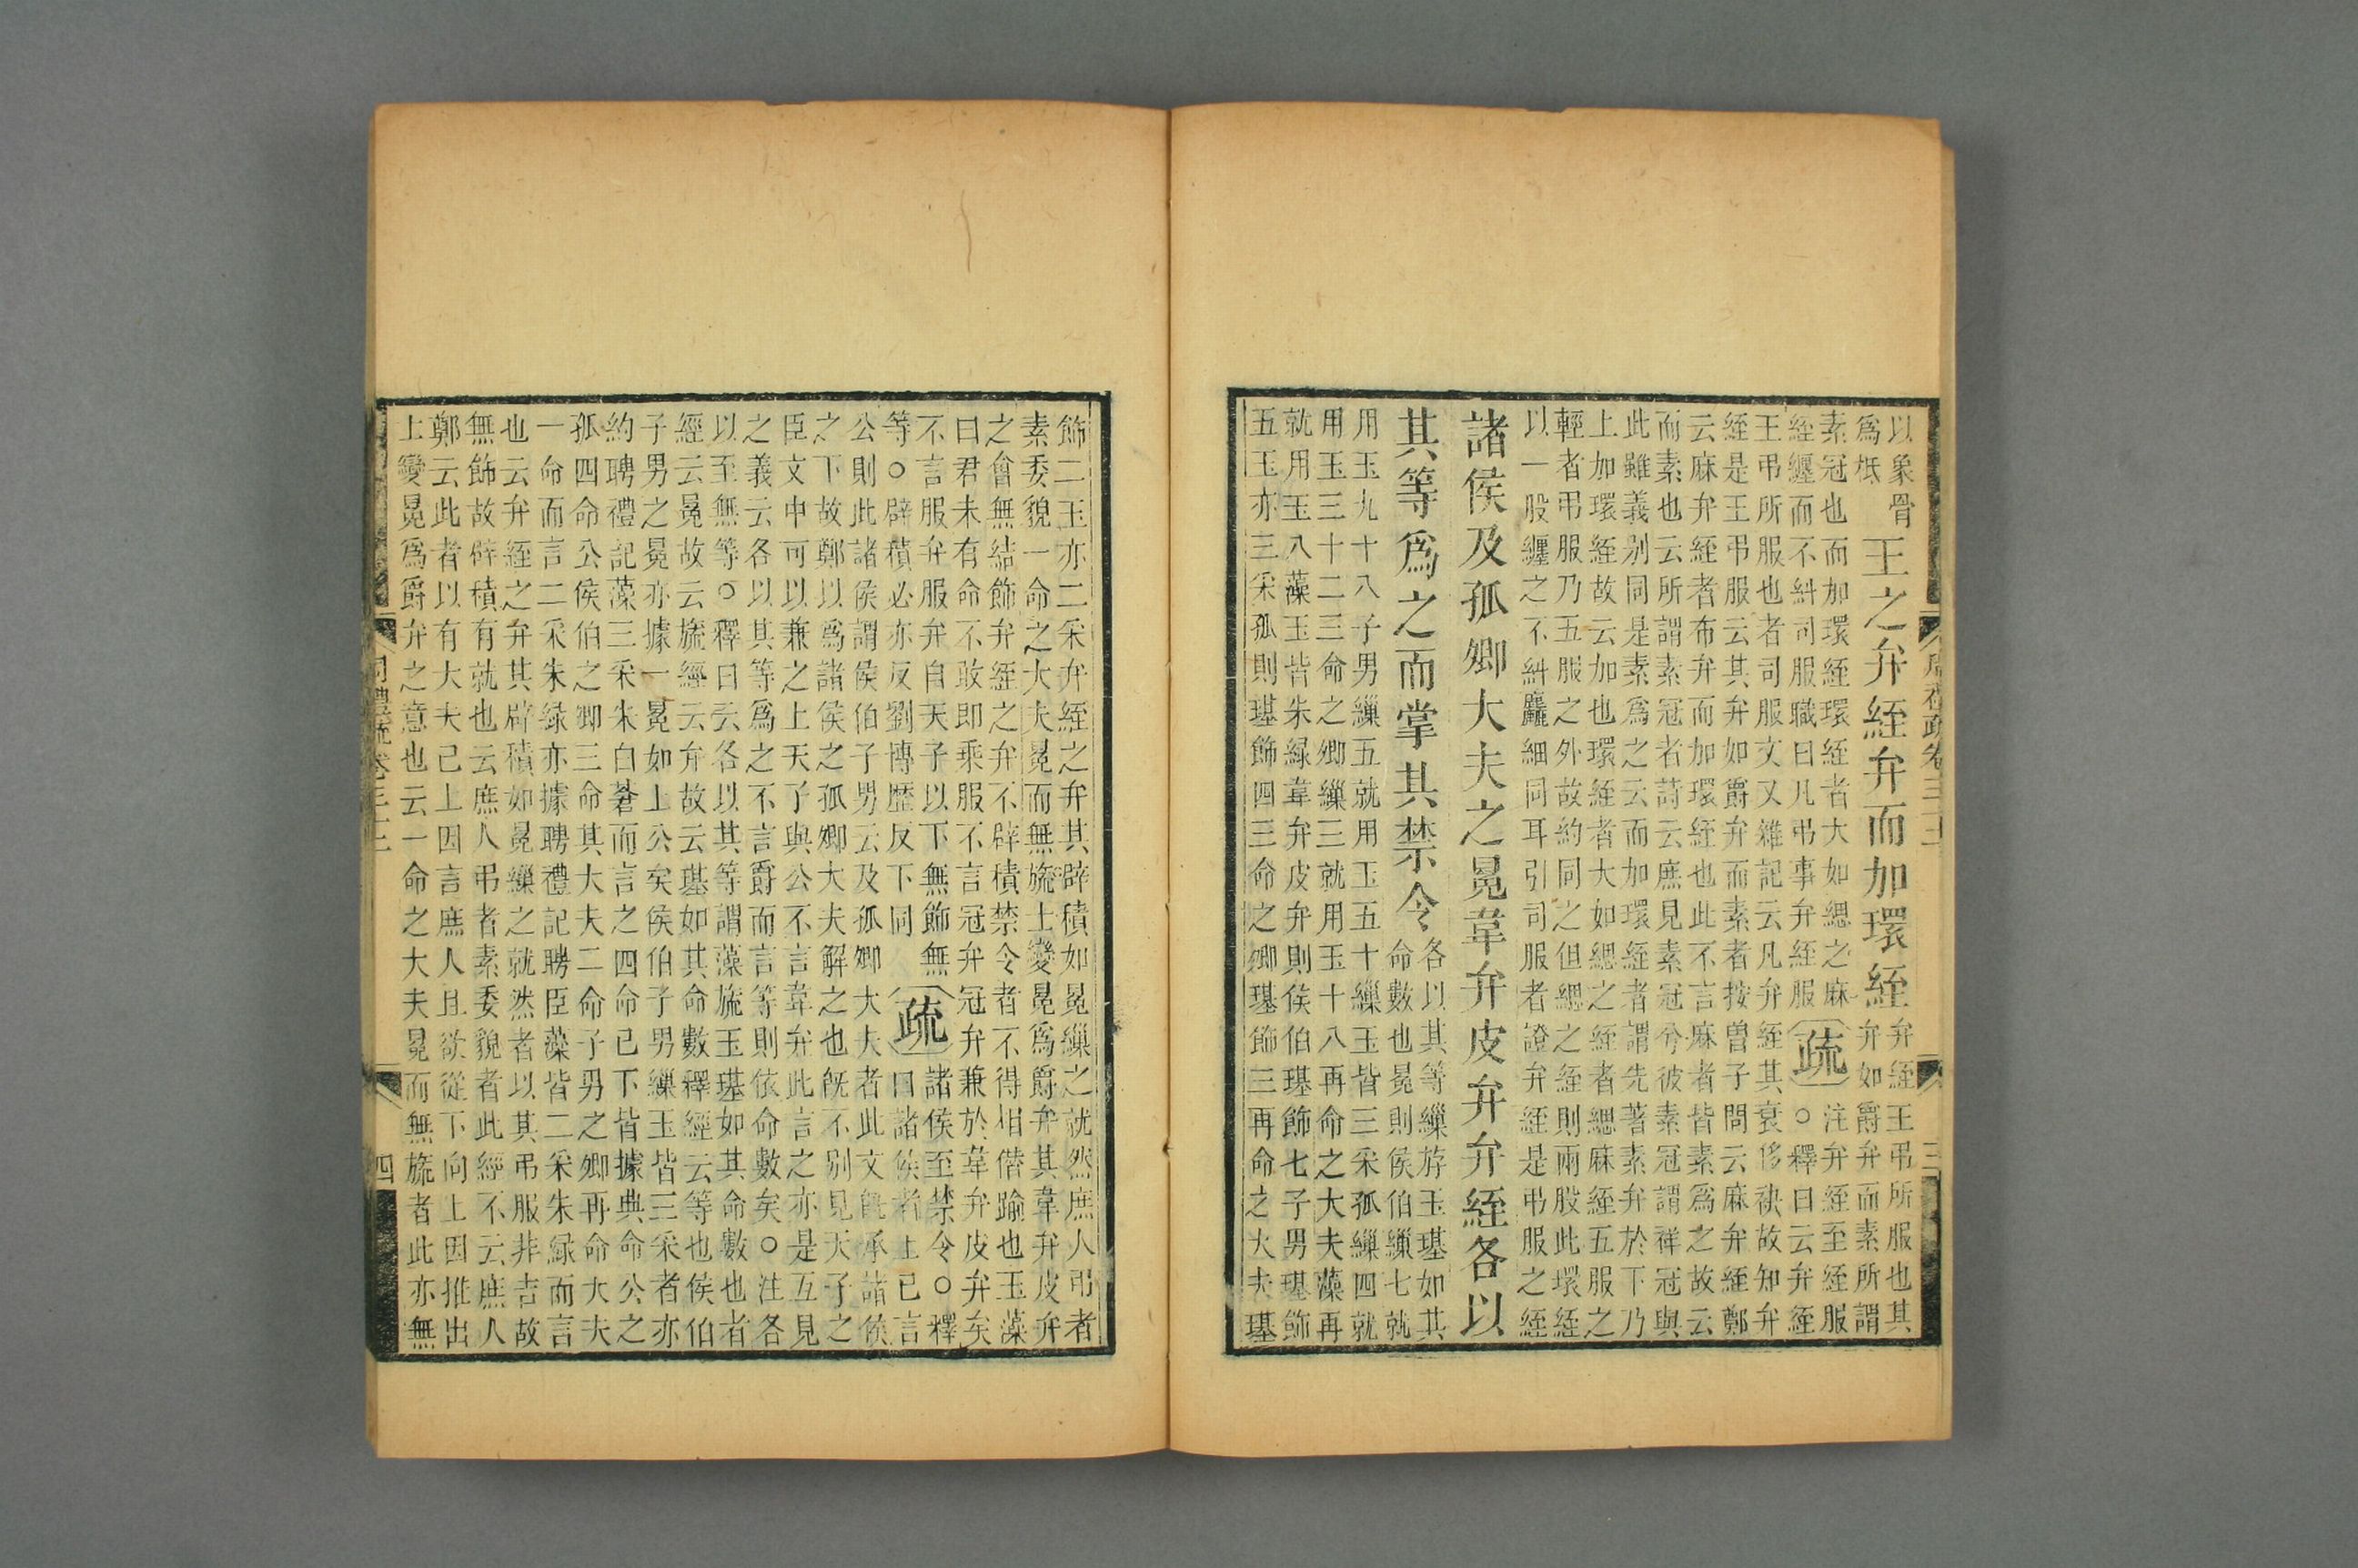 周禮疏卷三十二 三
以象骨
為柢
王之弁絰弁而加環絰
弁絰王弔所服也其
弁如爵弁而素所謂
素冠也而加環絰環絰者大如緦之麻
絰纒而不糾司服職曰凡弔事弁絰服
疏
注弁絰至絰服
○釋曰云弁絰
王弔所服也者司服文又雜記云凡弁絰其衰侈袂故知弁
絰是王弔服云其弁如爵弁而素者按曾子問云麻弁絰鄭
云麻弁絰者布弁而加環絰也此不言麻者皆素為之故云
而素也云所謂素冠者詩云庶見素冠兮彼素冠謂祥冠與
此雖義别同是素為之云而加環絰者謂先著素弁於下乃
上加環絰故云加也環絰者大如緦之絰者緦麻絰五服之
輕者弔服乃五服之外故約同之但緦之絰則兩股此環絰
以一股纒之不糾麤細同耳引司服者證弁絰是弔服之絰
諸侯及孤卿大夫之冕韋弁皮弁弁絰各以
其等為之而掌其禁令
各以其等繅斿玉璂如其
命數也冕則侯伯繅七就
用玉九十八子男繅五就用玉五十繅玉皆三采孤繅四就
用玉三十二三命之卿繅三就用玉十八再命之大夫藻再
就用玉八藻玉皆朱緑韋弁皮弁則侯伯璂飾七子男璂飾
五玉亦三采孤則璂飾四三命之卿璂飾三再命之大夫璂
飾二玉亦二采弁絰之弁其辟積如冕繅之就然庶人弔者
素委貌一命之大夫冕而無旒士變冕為爵弁其韋弁皮弁
之會無結飾弁絰之弁不辟積禁令者不得相僭踰也玉藻
曰君未有命不敢即乘服不言冠弁冠弁兼於韋弁皮弁矣
不言服弁服弁自天子以下無飾無
等○辟積必亦反劉博歷反下同
疏
諸侯至禁令○釋
曰諸侯者上已言
公則此諸侯謂侯伯子男云及孤卿大夫者此文既承諸侯
之下故鄭以為諸侯之孤卿大夫解之也既不别見天子之
臣文中可以兼之上天子與公不言韋弁此言之亦是互見
之義云各以其等為之不言爵而言等則依命數矣○注各
以至無等○釋曰云各以其等謂藻旒玉璂如其命數也者
經云冕故云旒經云弁故云璂如其命數釋經云等也侯伯
子男之冕亦據一冕如上公矣侯伯子男繅玉皆三采者亦
約聘禮記藻三采朱白蒼而言之四命已下皆據典命公之
孤四命公侯伯之卿三命其大夫二命子男之卿再命大夫
一命而言二采朱緑亦據聘禮記聘臣藻皆二采朱緑而言
也云弁絰之弁其辟積如冕繅之就然者以其弔服非吉故
無飾故辟積有就也云庶人弔者素委貌者此經不云庶人
鄭云此者以有大夫已上因言庶人且欲從下向上因推出
士變冕為爵弁之意也云一命之大夫冕而無旒者此亦無
周禮疏卷三十二 四